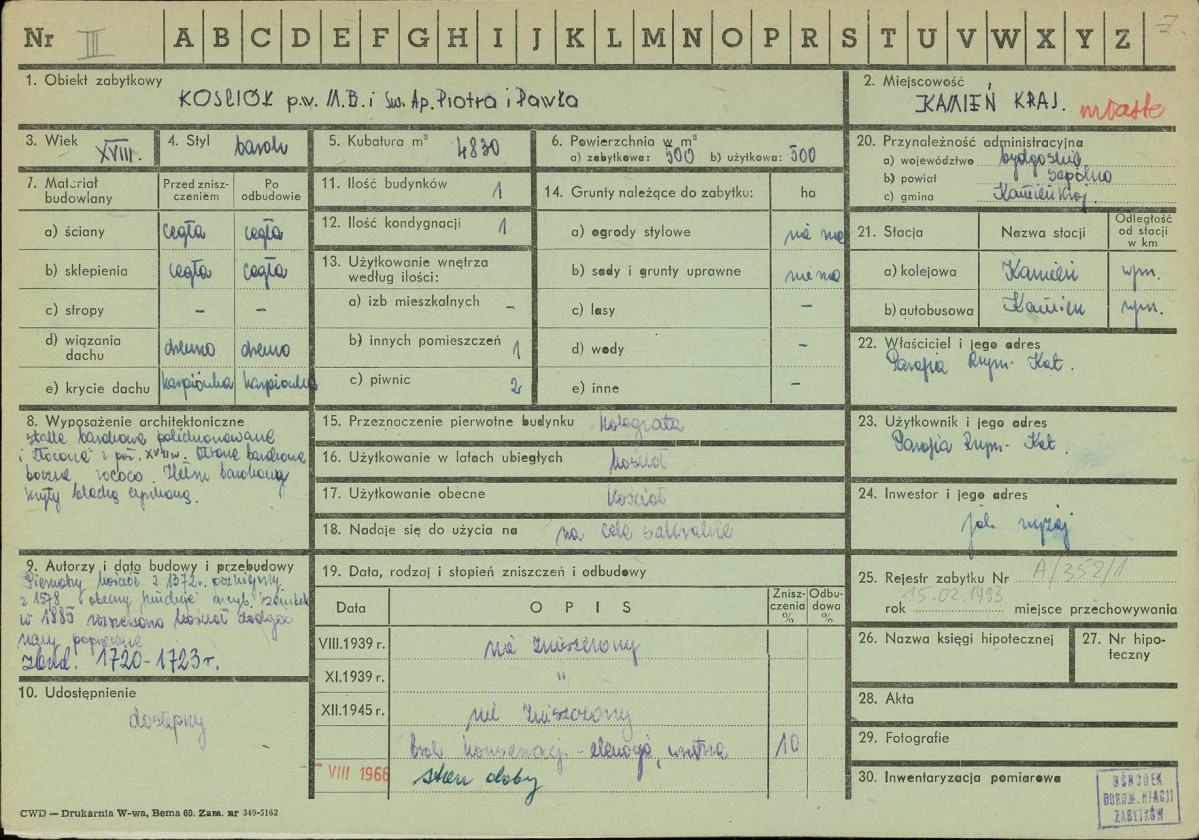 Nr III A B C D E F G H I J K L M N O P R S T U V W X Y Z 7.
1. Obiekt zabytkowy
KOŚCIÓŁ p.w. M.B. i Św. Ap. Piotra i Pawła
2. Miejscowość
KAMIEŃ KRAJ. miasto
3. Wiek XVIII.
4. Styl barok
5. Kubatura m³ 4830
6. Powierzchnia w m²
a) zabytkowa: 500 b) użytkowa: 500
20. Przynależność administracyjna
a) województwo bydgoskie
b) powiat Sępólno
c) gmina Kamień Kraj.
7. Materiał budowlany
Przed zniszczeniem
Po odbudowie
a) ściany cegła cegła
b) sklepienia cegła cegła
c) stropy - -
d) wiązania dachu drewno drewno
e) krycie dachu karpiówka karpiówka
11. Ilość budynków 1
12. Ilość kondygnacji 1
13. Użytkowanie wnętrza według ilości:
a) izb mieszkalnych -
b) innych pomieszczeń 1
c) piwnic 2
14. Grunty należące do zabytku: ha
a) ogrody stylowe nie ma
b) sady i grunty uprawne nie ma
c) lasy -
d) wody -
e) inne -
21. Stacja
Nazwa stacji
Odległość od stacji w km
a) kolejowa Kamień
b) autobusowa Kamień
22. Właściciel i jego adres
Parafia Rzym. Kat.
8. Wyposażenie architektoniczne
stalle barokowe polichromowane
i złocone z poł. XVIII w. barokowe
boczne rococo. Hełm barokowy
kryty blachą cynkową.
15. Przeznaczenie pierwotne budynku kolegiata
16. Użytkowanie w latach ubiegłych kościół
17. Użytkowanie obecne kościół
18. Nadaje się do użycia na na cele sakralne
23. Użytkownik i jego adres
Parafia Rzym. Kat.
24. Inwestor i jego adres
jak wyżej
9. Autorzy i data budowy i przebudowy
Pierwotny kościół z 1372 r. późniejszy
z 1578 obecny arcyb. Szembek
w 1885 kościół
nawy poprzeczne
zbud. 1720-1723 r.
10. Udostępnienie
dostępny
19. Data, rodzaj i stopień zniszczeń i odbudowy
Data OPIS Zniszczenia % Odbudowa %
VIII.1939 r. nie zniszczony
XI.1939 r. "
XII.1945 r. nie zniszczony
brak konserwacji - wnętrza 10
VIII 1966 stan dobry
25. Rejestr zabytku Nr A/352/1
15.02.1993
rok miejsce przechowywania
26. Nazwa księgi hipotecznej
27. Nr hipoteczny
28. Akta
29. Fotografie
30. Inwentaryzacja pomiarowa
OŚRODEK
DOKUMENTACJI
ZABYTKÓW
CWD — Drukarnia W-wa, Bema 60. Zam. nr 349-5162